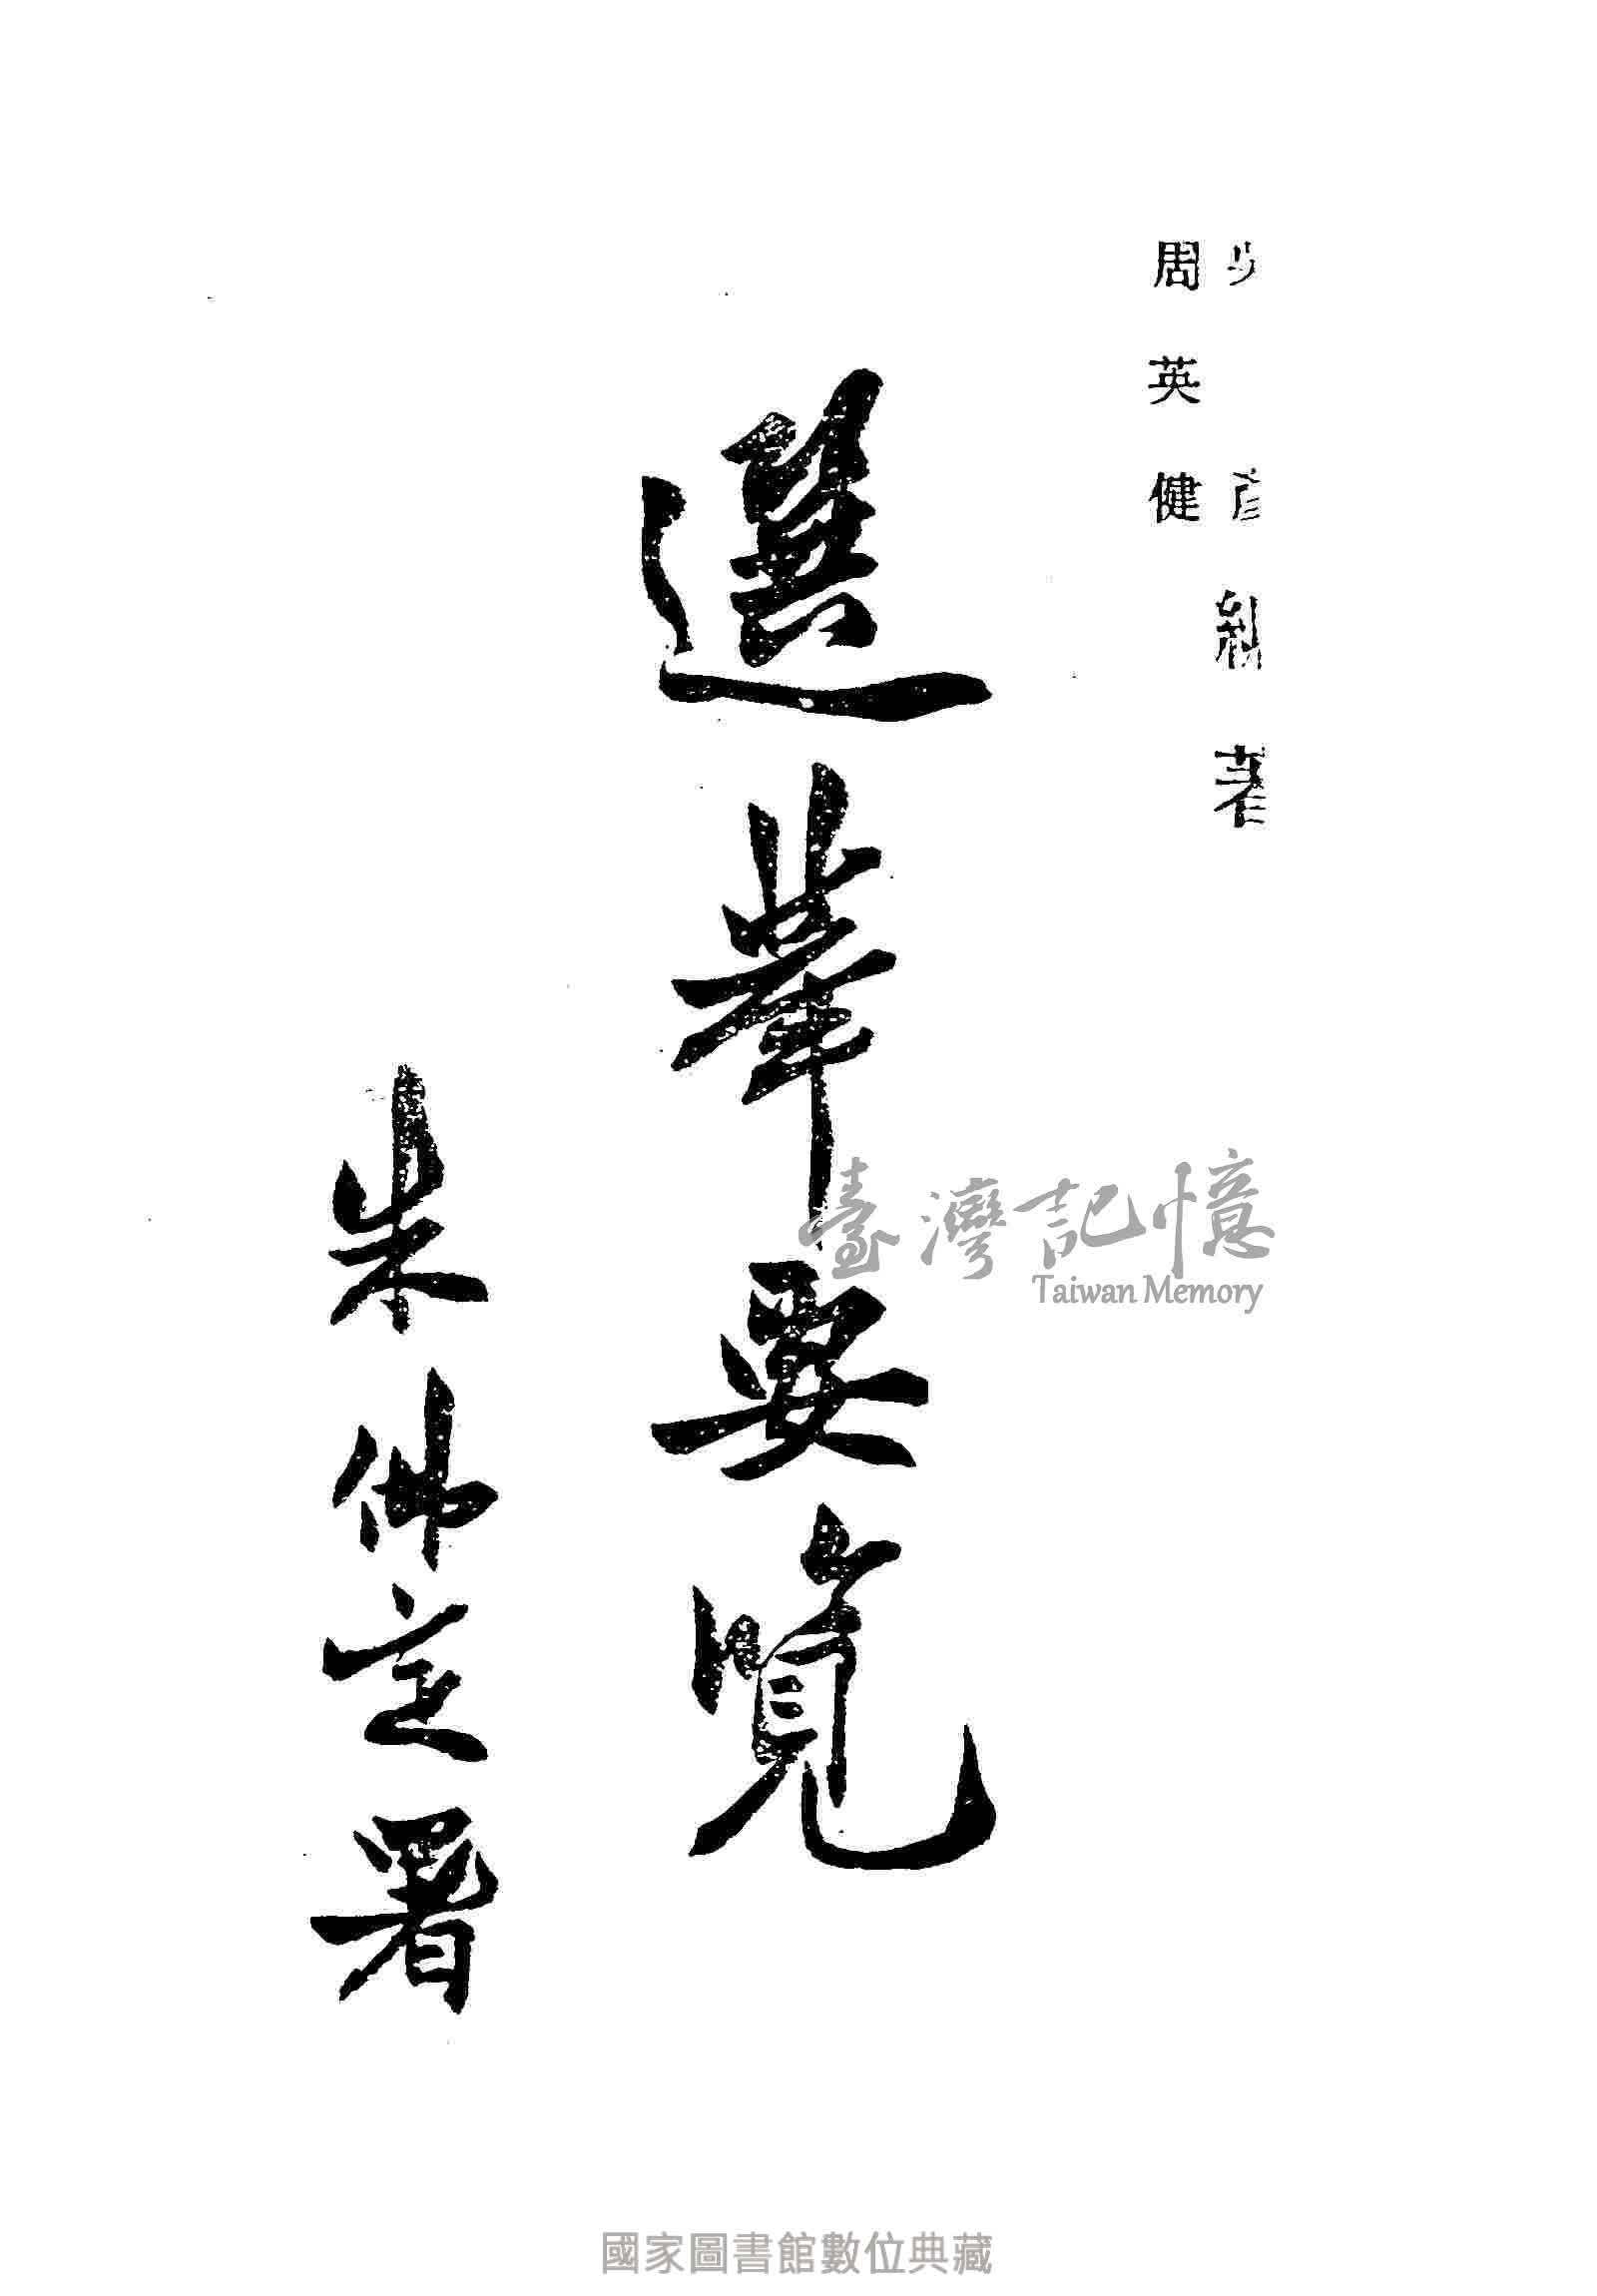 編著
周英健
選舉要覽
朱佛定署
臺灣記憶
Taiwan Memory
國家圖書館數位典藏